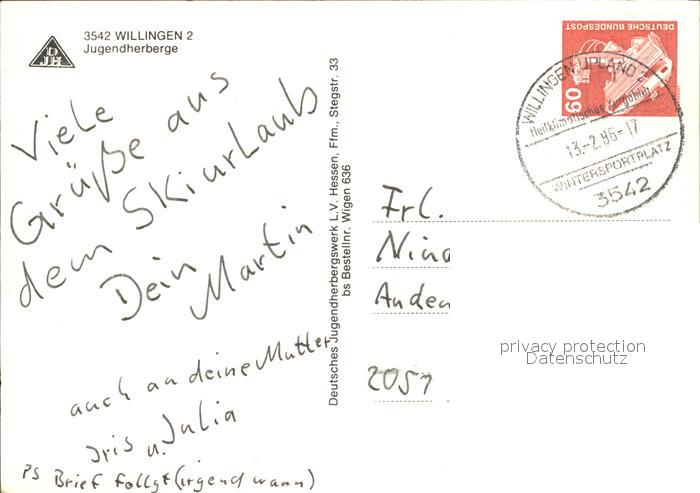 3542 WILLINGEN 2
Jugendherberge
Viele
Grüße aus
dem Skiurlaub
Dein
Martin
auch an deine Mutter
Iris u. Julia
PS Brief follgt (irgendwann)
Deutsches Jugendherbergswerk L.V. Hessen, Ffm., Stegstr. 33
bs Bestellnr. Wigen 636
DEUTSCHE BUNDESPOST
60
WILLINGEN-UPLAND 2
Heilklimatischer Kurgebiet
13.-2.86-17
WINTERSPORTPLATZ
3542
Frl.
Nina
Anden
2051
privacy protection
Datenschutz